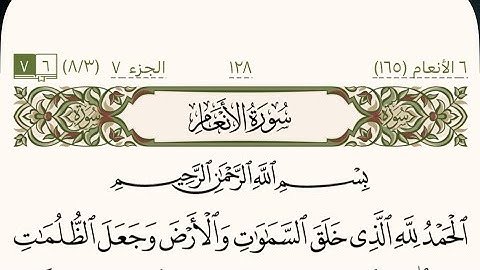 ٦ الأنعام (١٦٥) ١٢٨ الجزء ٧ (٨/٣) ٦ ٧
سُورَةُ الأَنْعَامِ
بِسْمِ ٱللَّهِ ٱلرَّحْمَٰنِ ٱلرَّحِيمِ
ٱلْحَمْدُ لِلَّهِ ٱلَّذِى خَلَقَ ٱلسَّمَٰوَٰتِ وَٱلْأَرْضَ وَجَعَلَ ٱلظُّلُمَٰتِ